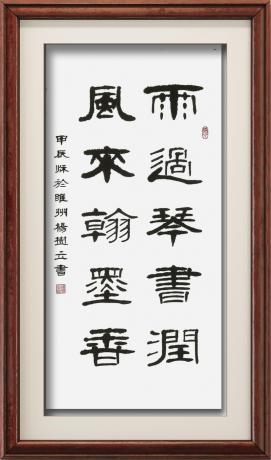 雨過琴書潤
風來翰墨香
甲辰秋於睢州楊樹立書